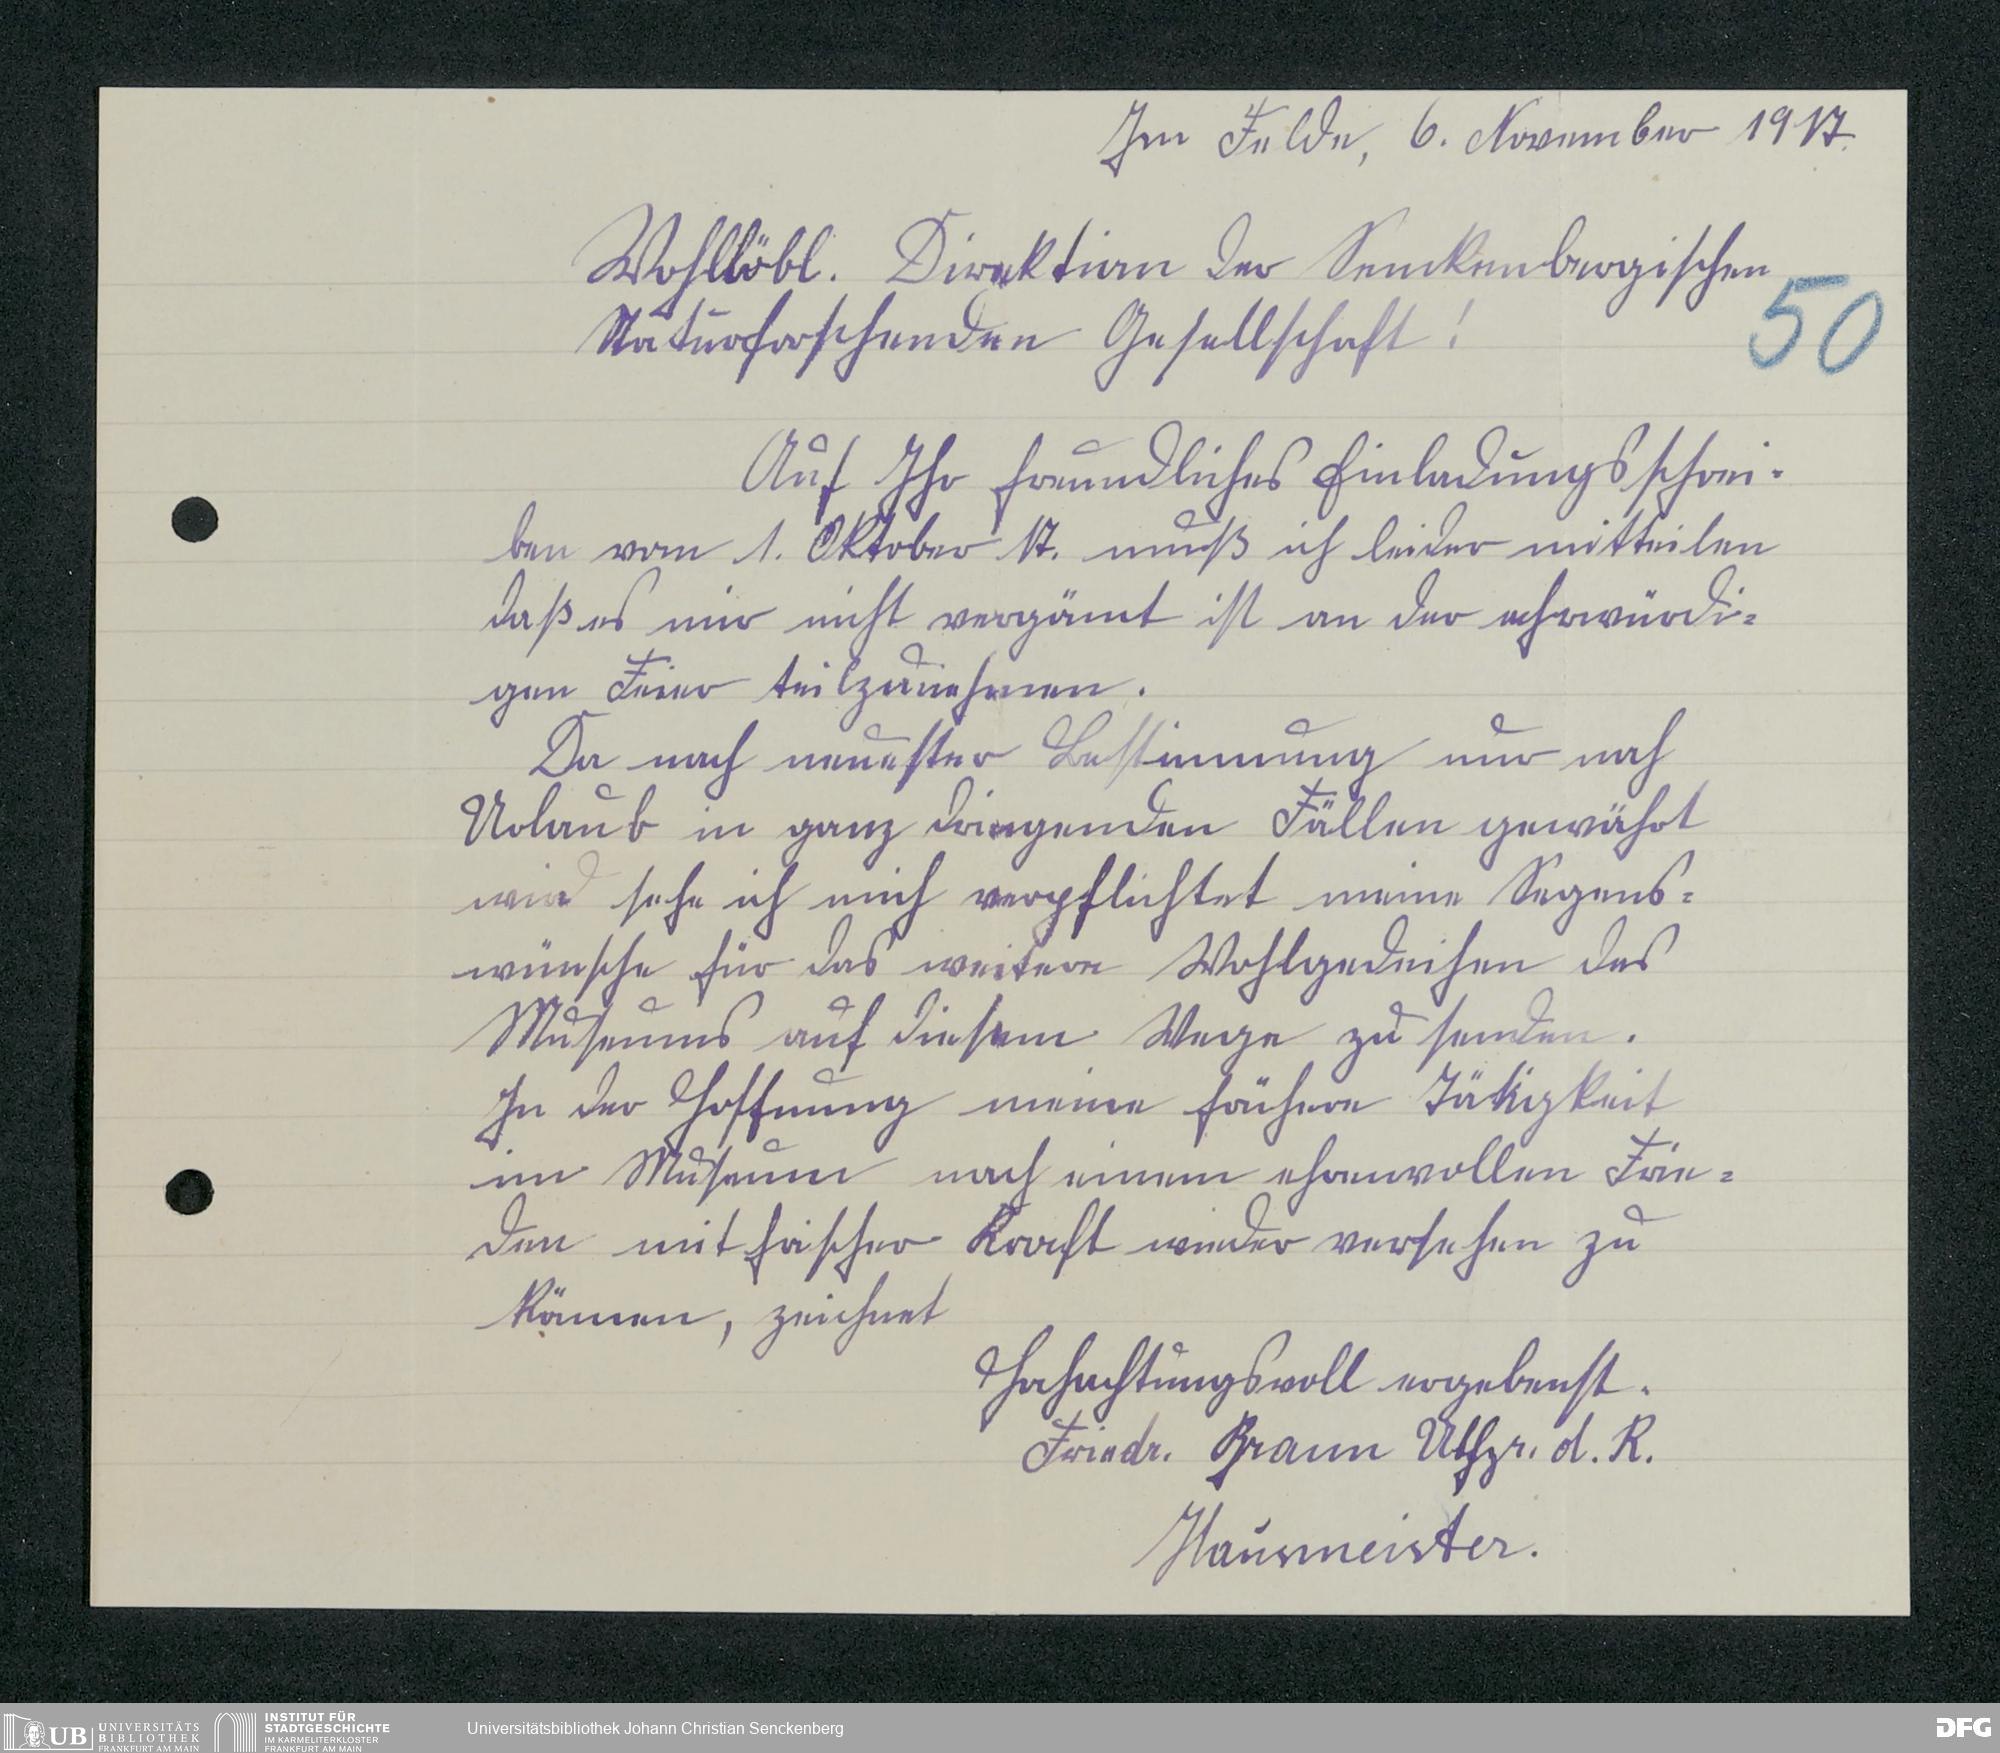 Im Felde, 6. November 1917.
Wohllöbl. Direktion der Senckenbergischen
Naturforschenden Gesellschaft!
50
Auf Ihr freundliches Einladungsschrei-
ben vom 1. Oktober 17. muß ich leider mitteilen
daß es mir nicht vergönnt ist an der ehrwürdi-
gen Feier teilzunehmen.
Da nach neuester Bestimmung nur noch
Urlaub in ganz dringenden Fällen gewährt
wird sehe ich mich verpflichtet meine Segens-
wünsche für das weitere Wohlgedeihen des
Museums auf diesem Wege zu senden.
In der Hoffnung meine frühere Tätigkeit
im Museum nach einem ehrenvollen Frie-
den mit frischer Kraft wieder versehen zu
können, zeichnet
Hochachtungsvoll ergebenst.
Friedr. Braun Utfzr. d. R.
Hausmeister.
UB UNIVERSITÄTS
BIBLIOTHEK
FRANKFURT AM MAIN
INSTITUT FÜR
STADTGESCHICHTE
IM KARMELITERKLOSTER
FRANKFURT AM MAIN
Universitätsbibliothek Johann Christian Senckenberg
DFG